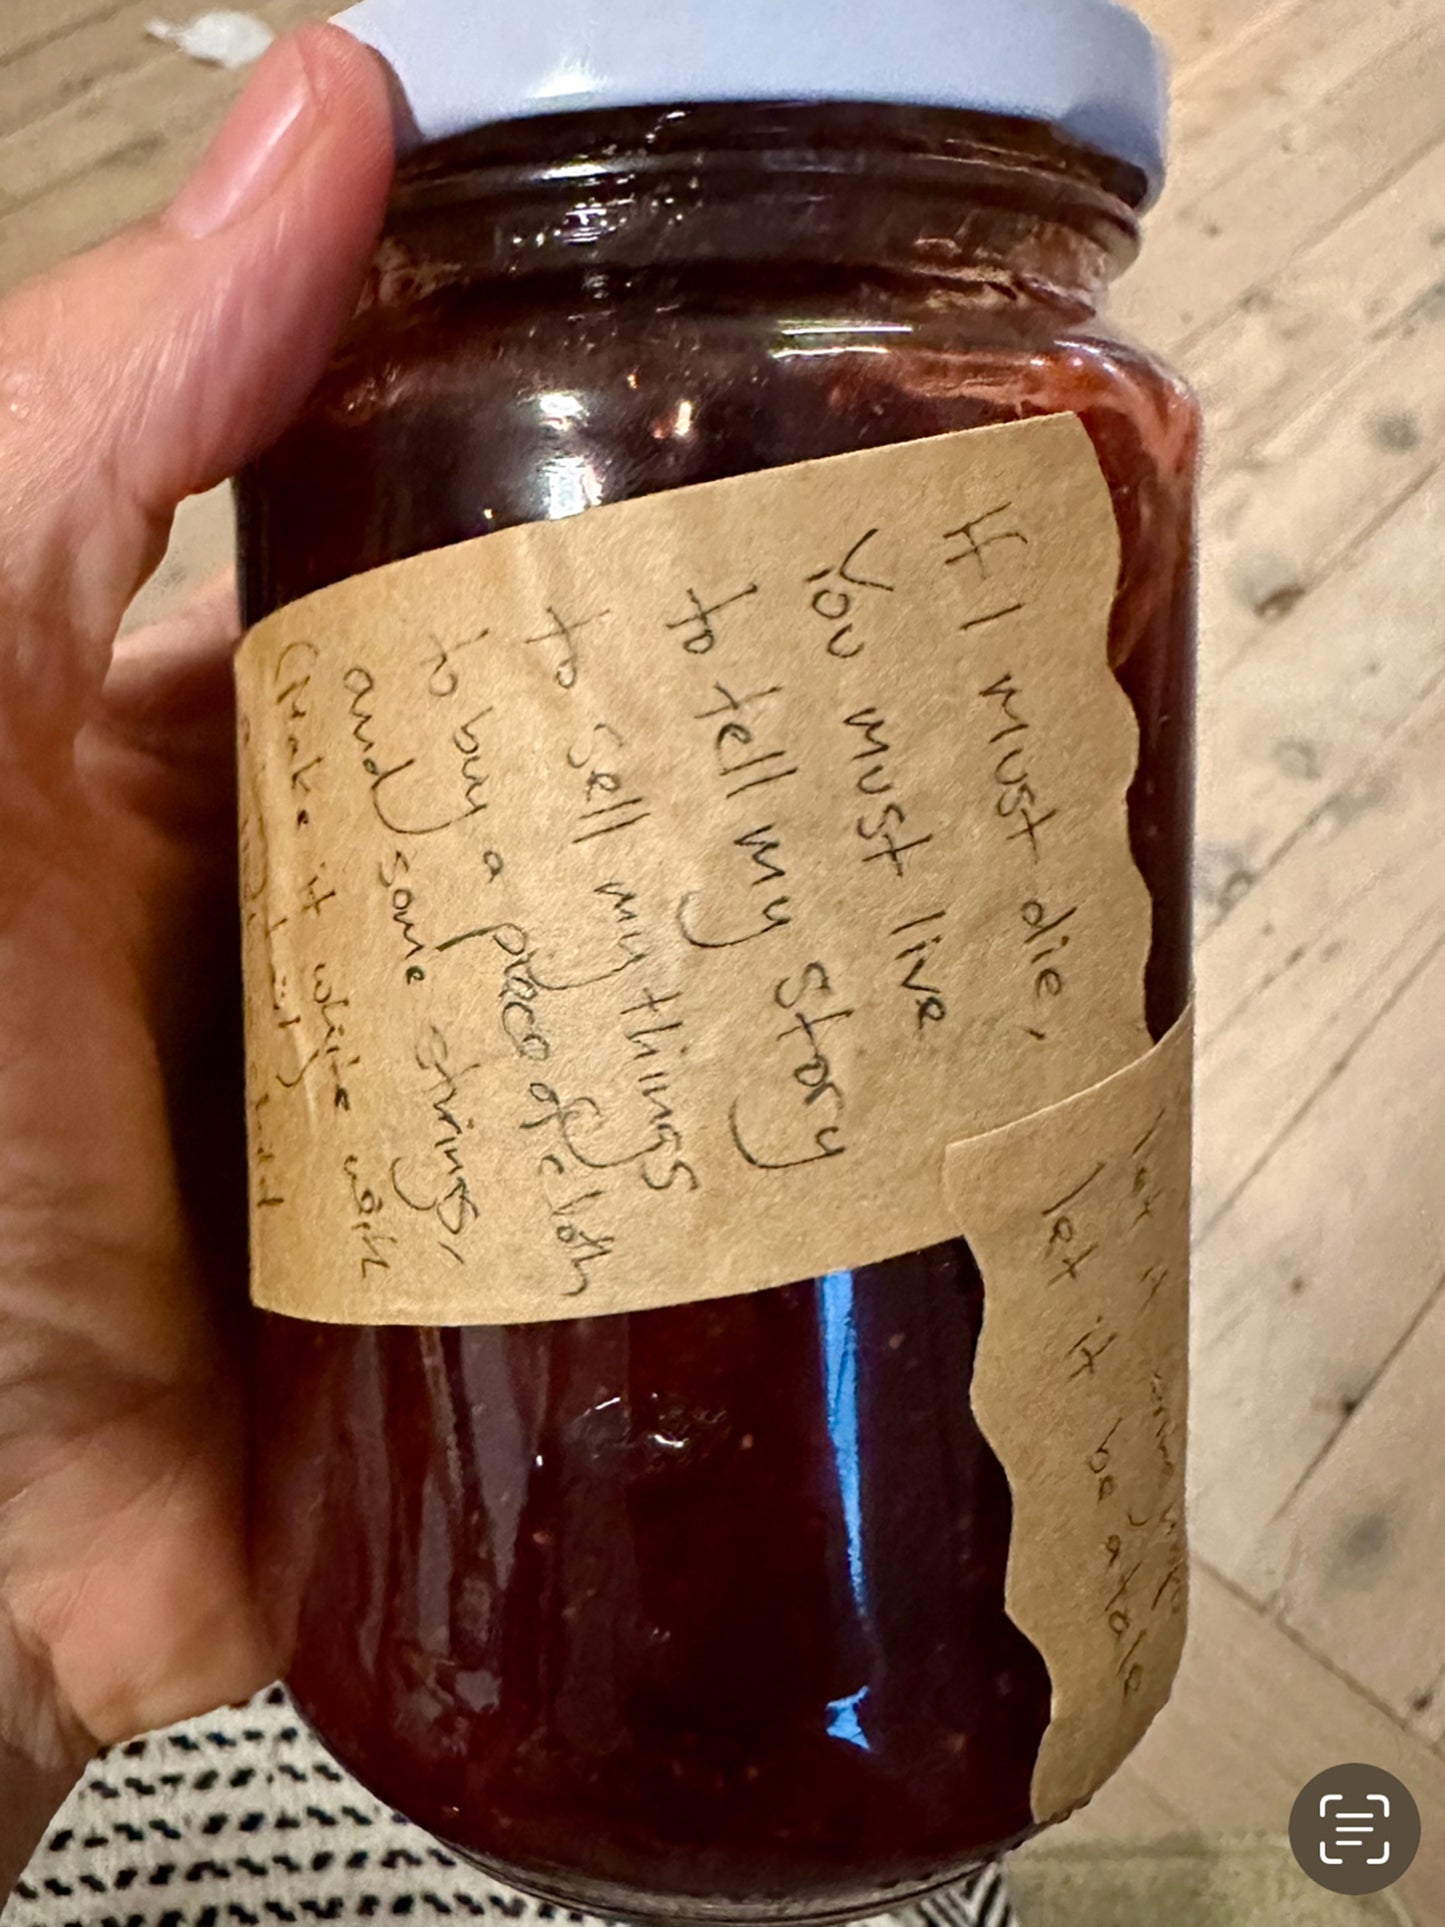 If I must die,
You must live
to tell my story
to sell my things
to buy a piece of cloth
and some strings,
(Make it white with
let it
let it be a tale